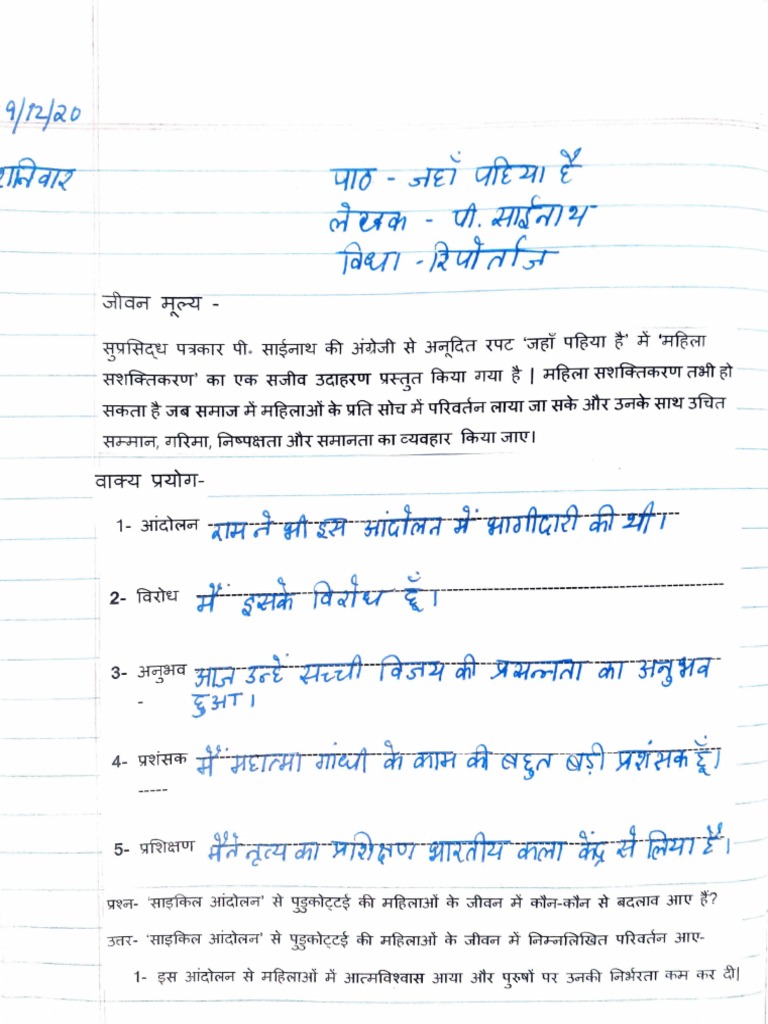 9/12/20
शनिवार
पाठ - जहाँ पहिया है
लेखक - पी. साईनाथ
विधा - रिपोर्ताज
जीवन मूल्य -
सुप्रसिद्ध पत्रकार पी. साईनाथ की अंग्रेजी से अनूदित रपट ‘जहाँ पहिया है’ में ‘महिला
सशक्तिकरण’ का एक सजीव उदाहरण प्रस्तुत किया गया है | महिला सशक्तिकरण तभी हो
सकता है जब समाज में महिलाओं के प्रति सोच में परिवर्तन लाया जा सके और उनके साथ उचित
सम्मान, गरिमा, निष्पक्षता और समानता का व्यवहार किया जाए।
वाक्य प्रयोग-
1- आंदोलन राम ने भी इस आंदोलन में भागीदारी की थी।
2- विरोध मैं इसके विरोध हूँ।
3- अनुभव आज उन्हें सच्ची विजय की प्रसन्नता का अनुभव
- हुआ।
4- प्रशंसक मैं महात्मा गांधी के काम की बहुत बड़ी प्रशंसक हूँ।
-----
5- प्रशिक्षण मैंने नृत्य का प्रशिक्षण भारतीय कला केंद्र से लिया है।
प्रश्न- ‘साइकिल आंदोलन’ से पुडुकोट्टई की महिलाओं के जीवन में कौन-कौन से बदलाव आए हैं?
उत्तर- ‘साइकिल आंदोलन’ से पुडुकोट्टई की महिलाओं के जीवन में निम्नलिखित परिवर्तन आए-
1- इस आंदोलन से महिलाओं में आत्मविश्वास आया और पुरुषों पर उनकी निर्भरता कम कर दी|